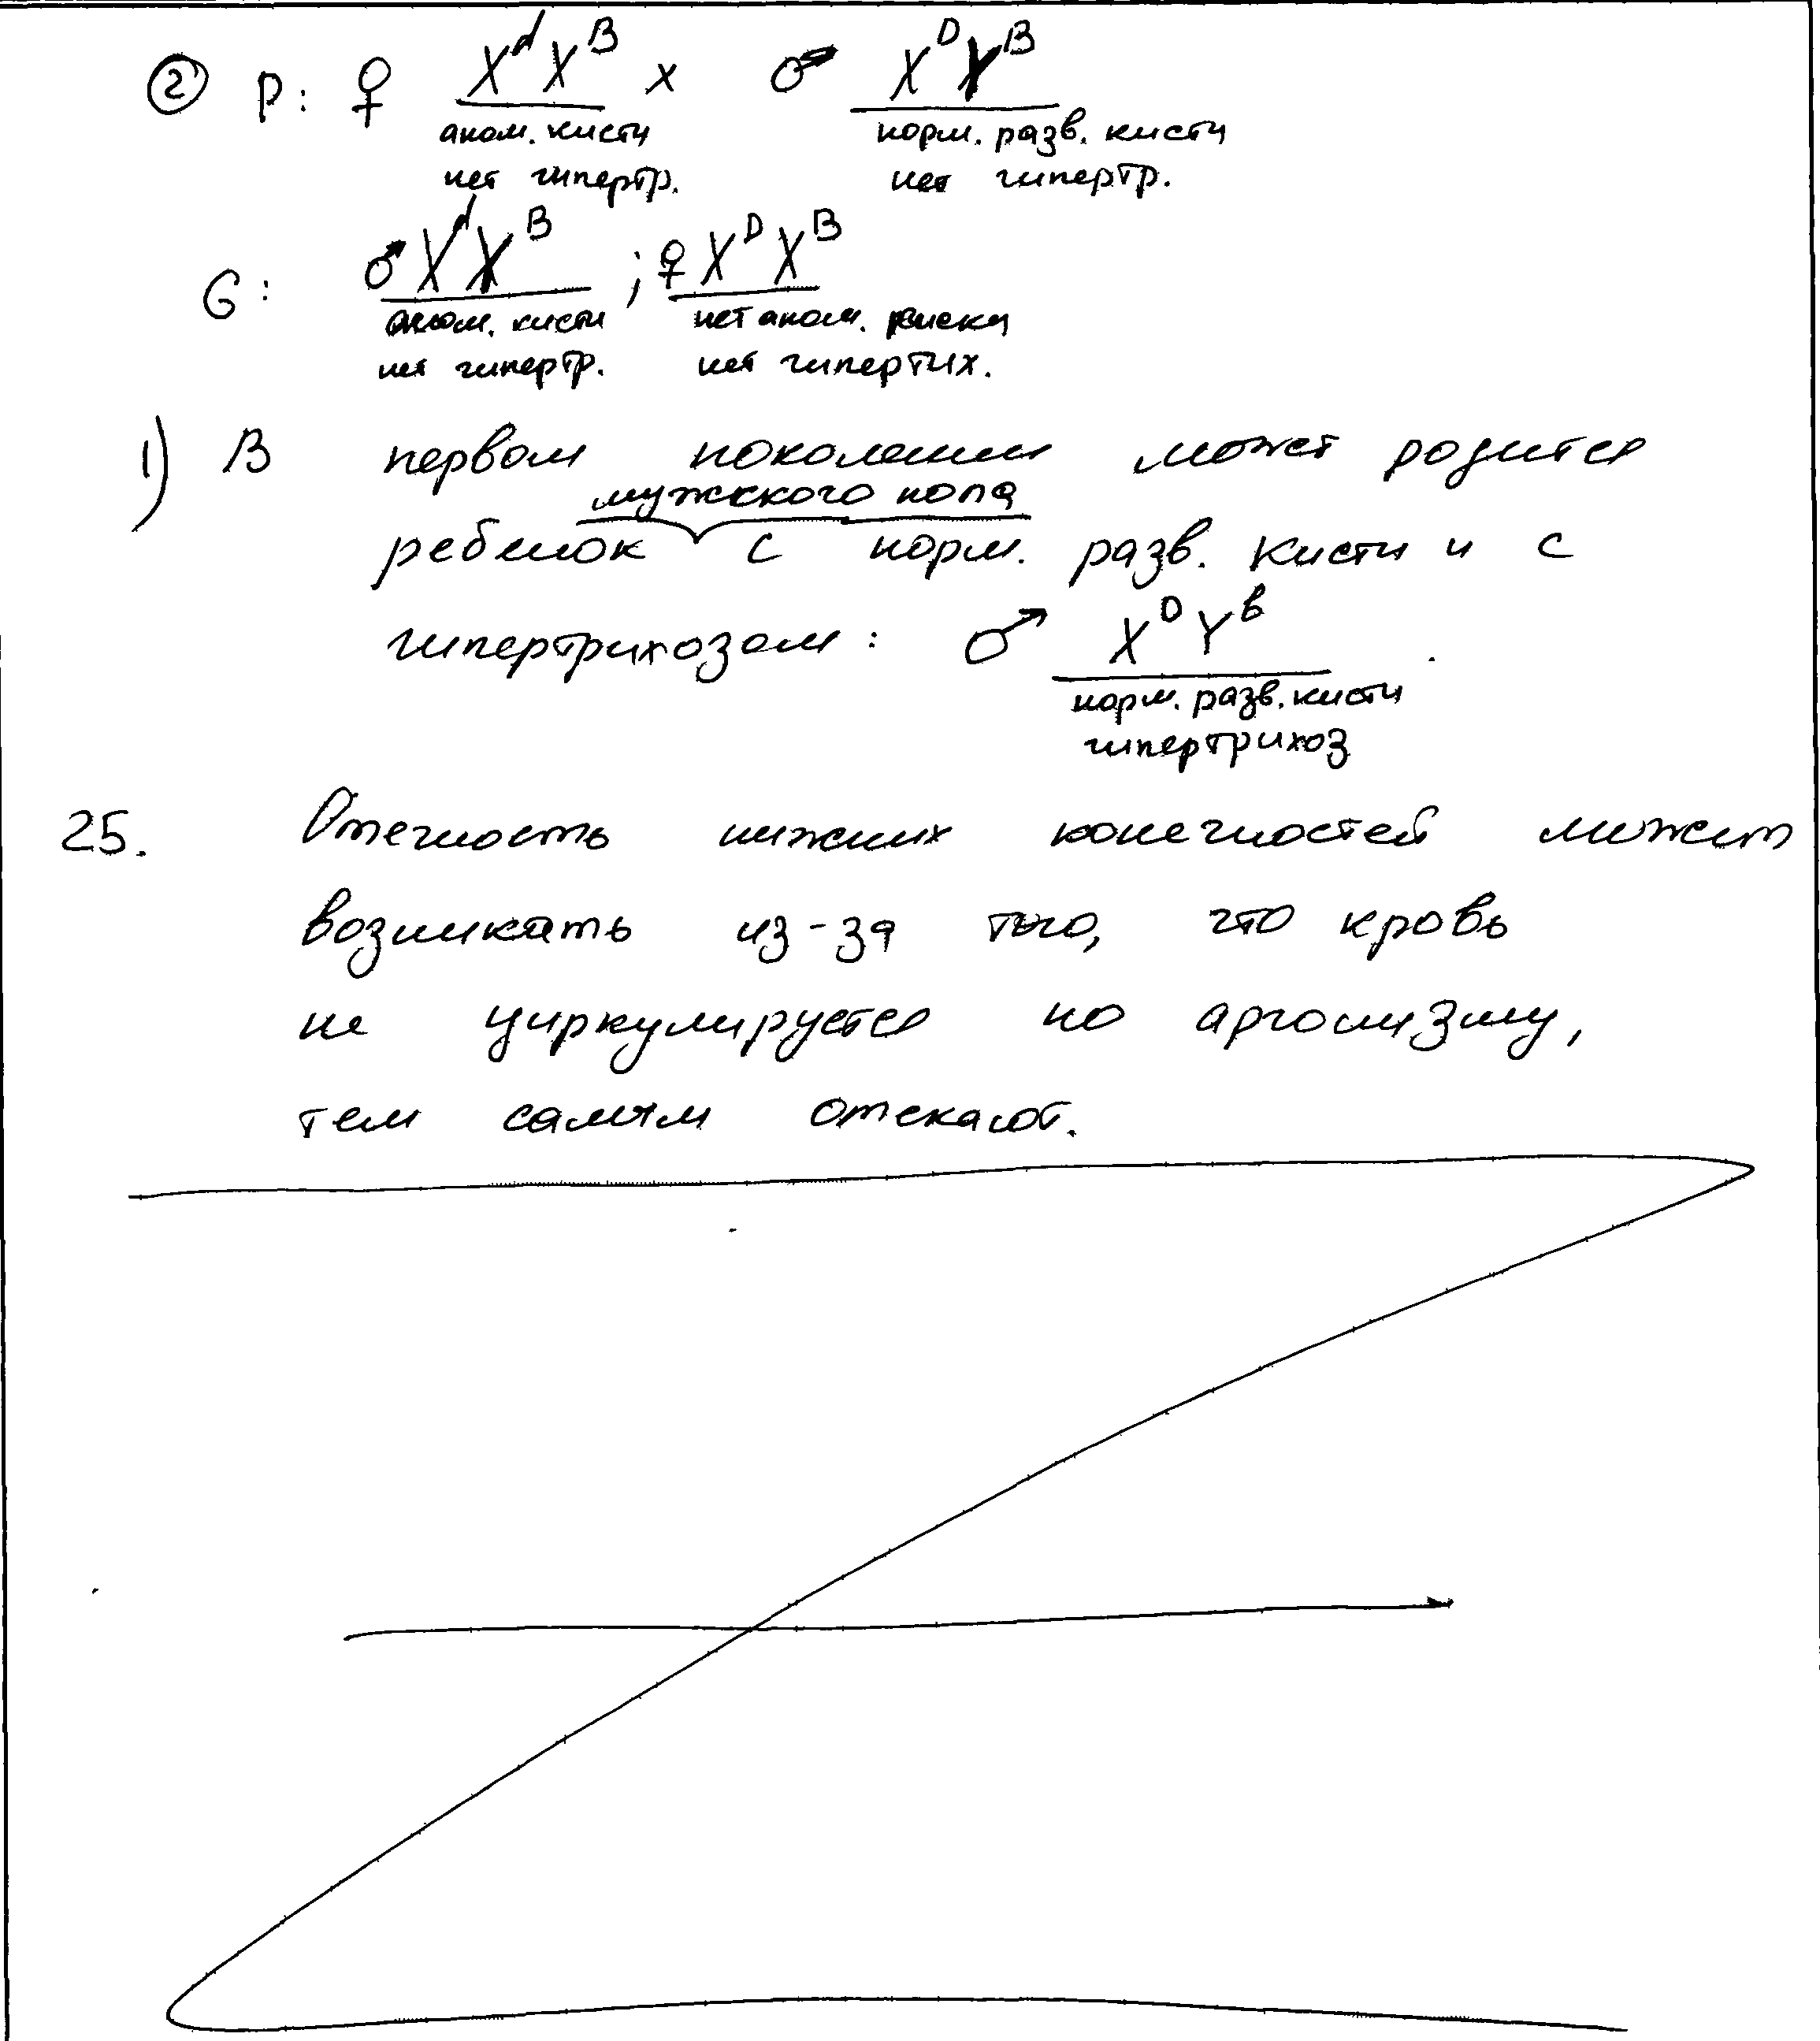 ② P: ♀ XᵈXᴮ x ♂ XᴰYᴮ
аном. кисти норм. разв. кисти
нет гипертр. нет гипертр.
G: ♂XᵈYᴮ ; ♀XᴰXᴮ
аном. кисти нет аном.
нет гипертр. нет гипертих.
1) В первом поколении может родится
мужского пола
ребенок с норм. разв. кисти и с
гипертрихозом: ♂ XᴰYᵇ
норм. разв. кисти
гипертрихоз
25. Отечность нижних конечностей может
возникать из-за того, что кровь
не циркулируется по аргонизму,
тем самым отекают.